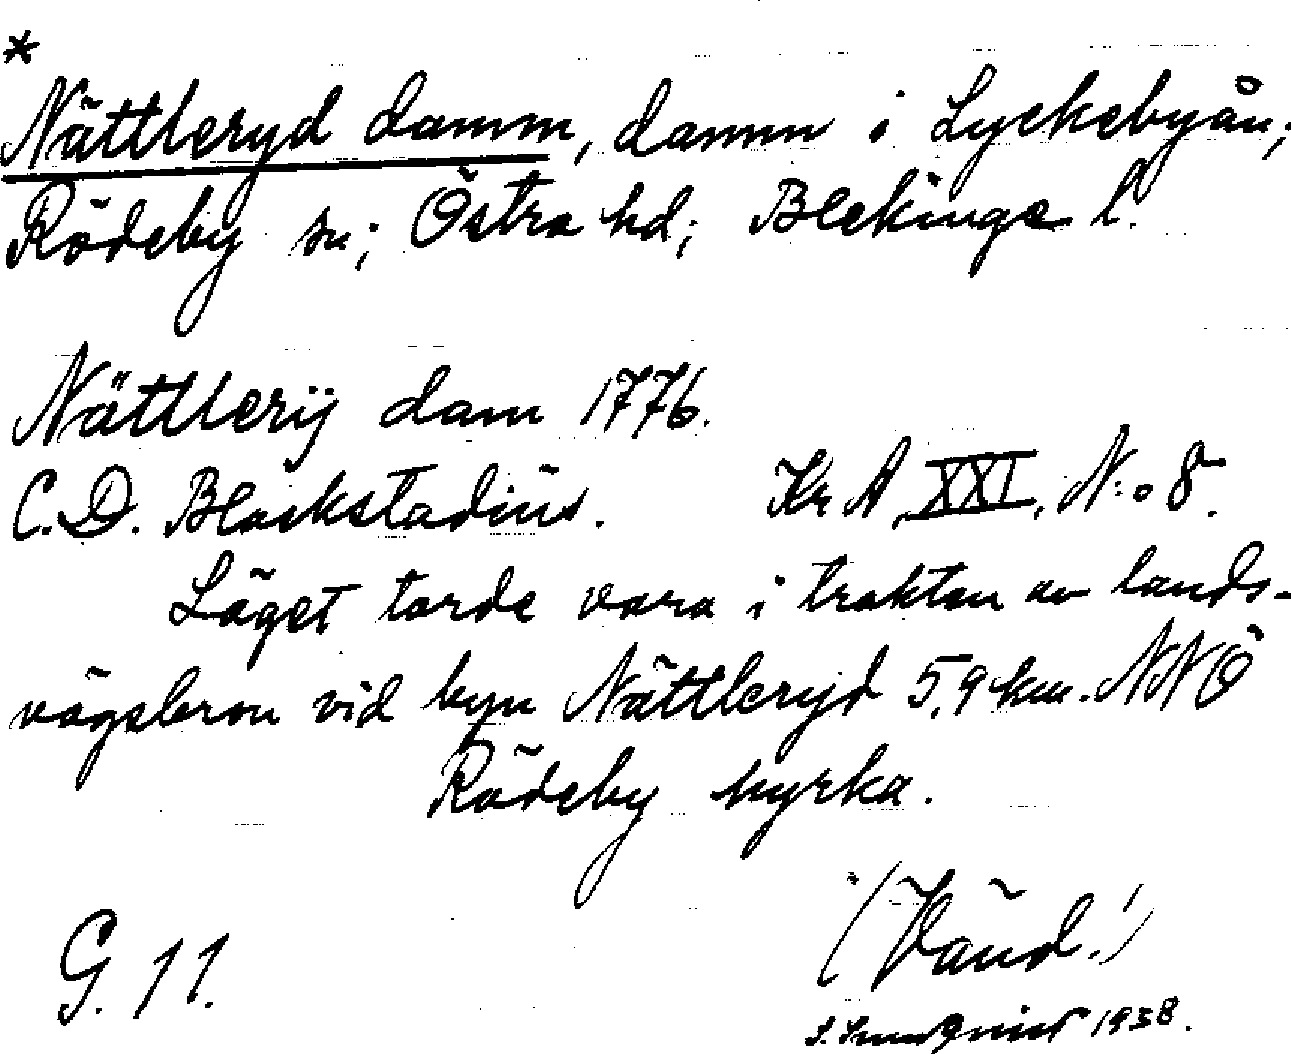 *
Nättleryd damm, damm i Lyckebyån;
Rödeby sn; Östra hd; Blekinge l.
Nättlerÿ dam 1776.
C. D. Blackstadius. Kr A, XXI, N:o 8.
Läget torde vara i trakten av lands-
vägsbron vid byn Nättleryd 5,9 km. NNÖ
Rödeby kyrka.
(Vänd!)
G. 11.
1938.